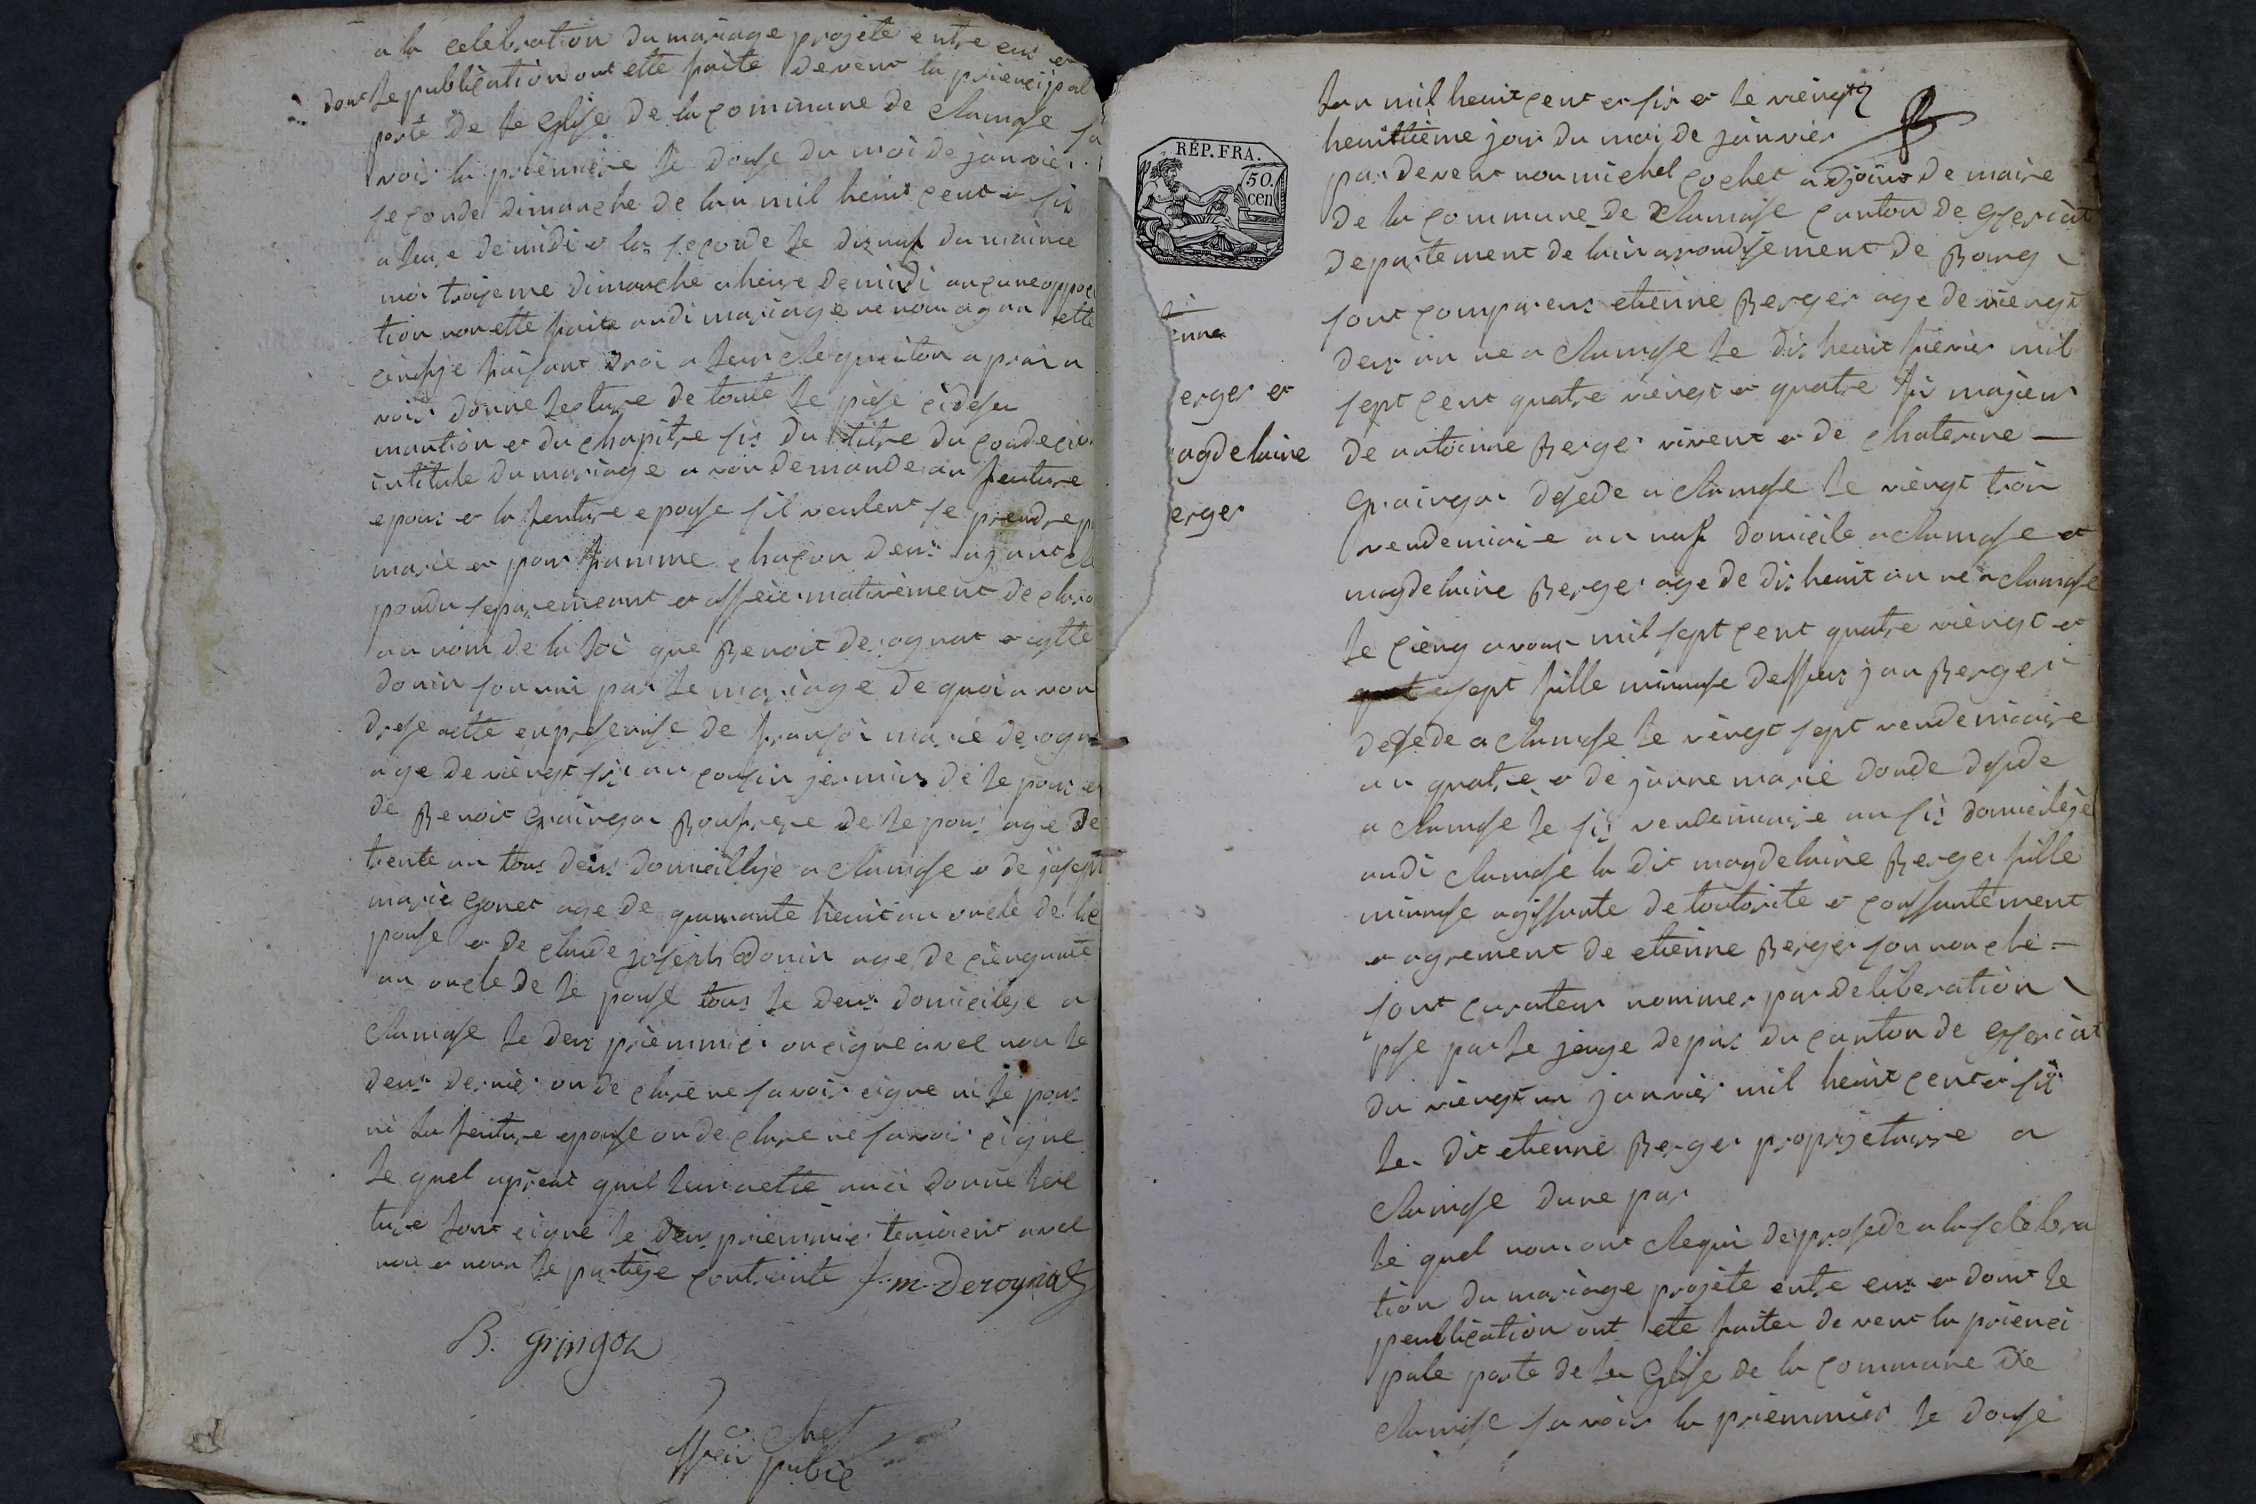 a la celebration du mariage projété entre eux et
dont le publication ont ette faite devent la prienсipal
porte de le Glise de la commune de Clumase sa
voir la priemiere le douse du moi de janvier
seconde dimanche de lan mil heuit cent et sis
a heure de midi et la seconde le disnaf du maime
moi troiseme dimanche a heure de midi aucune oppoci
tion non ette faite audi mariage ne nom ayan ette
faisant droi a leur a prai a
voir donne lecture de toute le piese cidesu
mantion et du chapitre sis du titre du code civi
intitule du mariage avon demande au feuture
epoux et la feuture epouse sil veulent se prendre p
marie et pour famme chacon deux ayant
pondu separemeant et affeirmativement declaro
au nom de la loi que Benoit derognat et
donin son uni par le mariage de quoi avon
drese acte en presense de fransoi marie derogna
age de viengt sis an cousin jermin de le pous et
de Benoit Graingon Boufrere de le pous age de
trente an tous deux domicillije a Clumase et de joseph
marie Gonet age de quarante heuit an oncle de le
pouse et de claude joseph Donin age de ciengnante
an oncle de le pouse tous le deux domicilije a
Clumase le deux priemmier on cigne avec nou le
deux dernier on declare ne savoir cigne ni le pous
ni la feuture epouse on declare ne savoir cigne
le quel apreat quil leur aette auci donne lec
ture lont cigne le deux priemmier temoient avec
nou et non le partije contrainte f. m. Derognat
B. Gringoz
Cochet
offici public
RÉP. FRA.
50.
cen
erger et
agdelaine
erger
lan mil heuit cent et sis et le viengt
heuitième jour du moi de janvier
par devent nou michel cochet adjoint de maire
de la commune de Clumase canton de
departement de lain arondisement de Bourg
sont comparus etienne Berger age de viengt
deux an ne a Clumase le dis heuit fievrier mil
sept cent quatre viengt et quatre fis majeur
de antoinne Berger vivent et de Chaterine
Graingon desede a Clumase le viengt troi
vendemiaire an naf domicile a Clumase et
magdelaine Berger age de dis heuit an ne a Clumase
le cieng avout mil sept cent quatre viengt et
sept fille minause deffeux jan Berger
desede a Clumase le viengt sept vendemiaire
an quatre et de janne marie donde desede
a Clumase le sis vendemiaire an sis domicilije
audi Clumase la dit magdelaine Berger fille
minause agissante de loutorite et consantement
et agrement de etienne Berger son noncle
sont curateur nommer par deliberation
pse par le jeuge de pais du canton de
du viengt un janvier mil heuit cent et sis
le dit etienne Berger proprijetairre a
Clumase dune par
le quel nom ont de prosede a la selebra
tion du mariage projéte entre eux et dont le
peublication ont ete faiter devent la prienci
pale porte de le Glise de la commune de
Clumase savoir la priemmier le douse